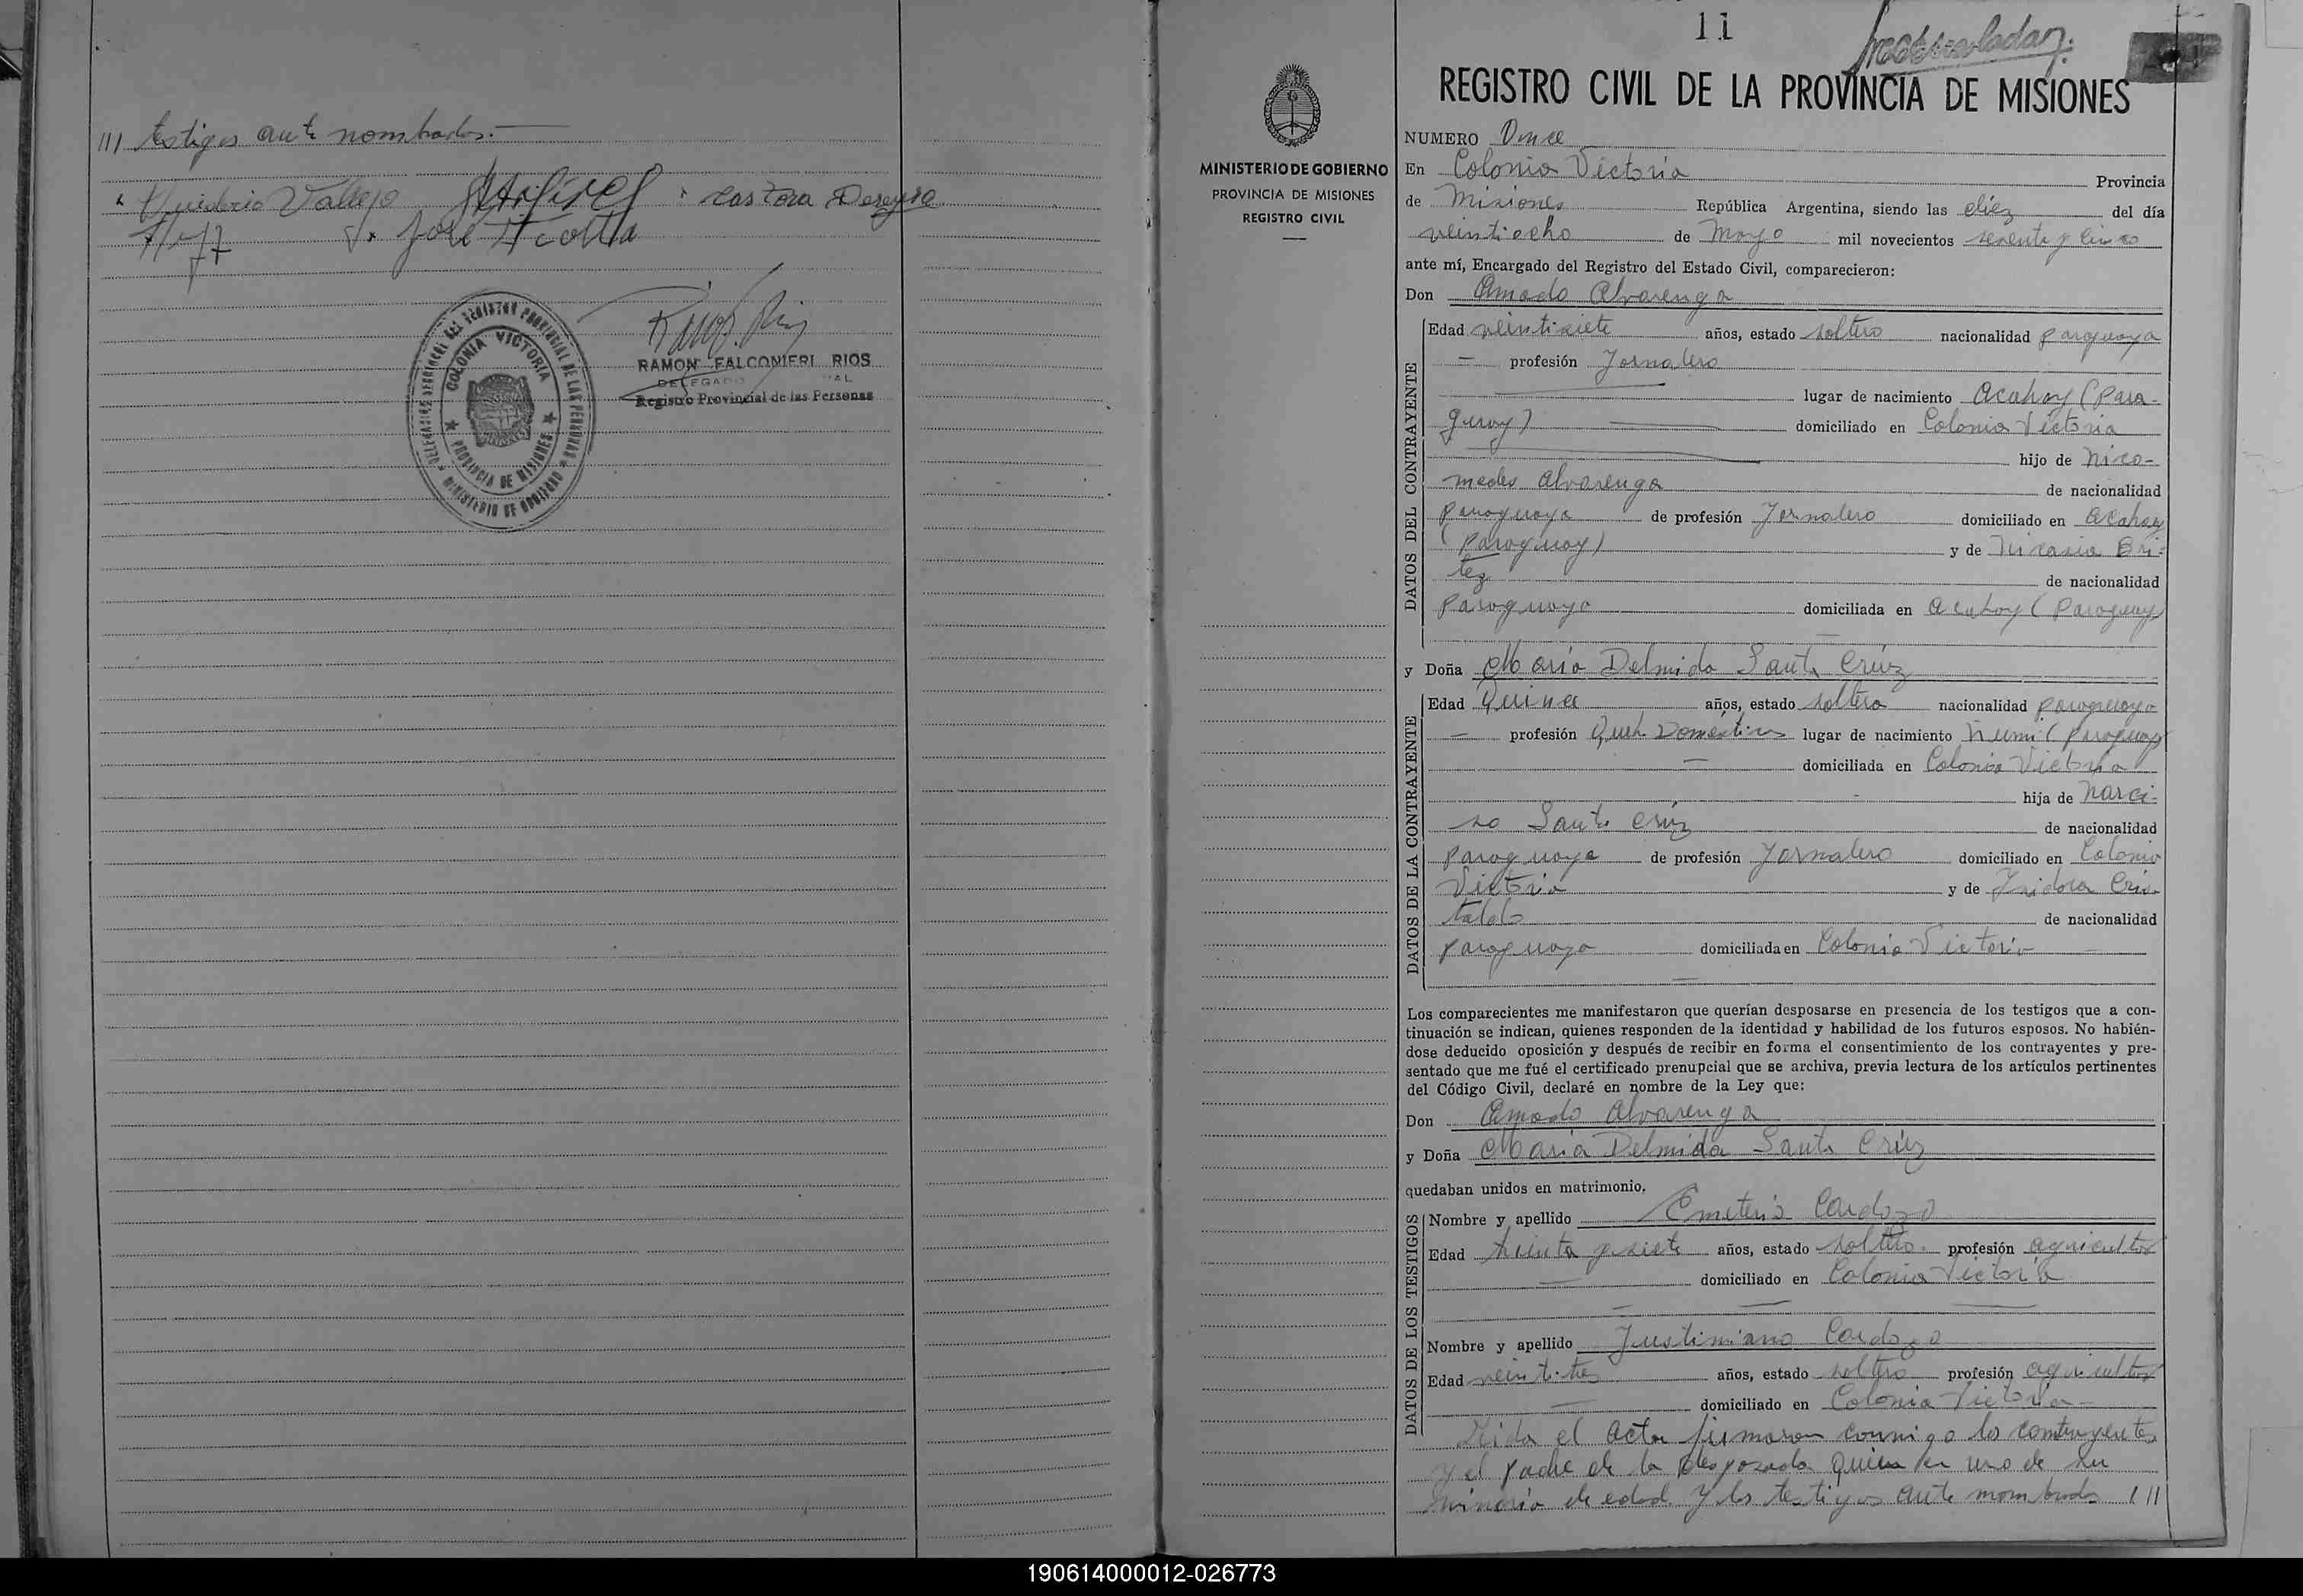 /// testigos ante nombrados.—
Vallejo
José Acosta
RAMON FALCONIERI RIOS
DELEGADO
Registro Provincial de las Personas
COLONIA VICTORIA
PROVINCIA DE MISIONES
MINISTERIO DE GOBIERNO
MINISTERIO DE GOBIERNO
PROVINCIA DE MISIONES
REGISTRO CIVIL
11
REGISTRO CIVIL DE LA PROVINCIA DE MISIONES
NUMERO Once
En Colonia Victoria Provincia
de Misiones República Argentina, siendo las diez del día
veintiocho de Mayo mil novecientos setenta y cinco
ante mí, Encargado del Registro del Estado Civil, comparecieron:
Don Amado Alvarenga
DATOS DEL CONTRAYENTE
Edad veintisiete años, estado soltero nacionalidad paraguaya
— profesión Jornalero
lugar de nacimiento Acahay (Para-
guay) domiciliado en Colonia Victoria
hijo de Nico-
medes Alvarenga de nacionalidad
paraguaya de profesión Jornalero domiciliado en Acahay
(Paraguay) y de Nicasia Bri-
tez de nacionalidad
Paraguaya domiciliada en Acahay (Paraguay)
y Doña María Delmida Santa Crúz
DATOS DE LA CONTRAYENTE
Edad Quince años, estado soltera nacionalidad paraguaya
— profesión Queh. Domésticos lugar de nacimiento Ñumí (Paraguay)
— domiciliada en Colonia Victoria
hija de Narci-
so Santa Crúz de nacionalidad
paraguaya de profesión Jornalero domiciliado en Colonia
Victoria y de Isidora Cris-
taldo de nacionalidad
paraguaya domiciliada en Colonia Victoria —
Los comparecientes me manifestaron que querían desposarse en presencia de los testigos que a con-
tinuación se indican, quienes responden de la identidad y habilidad de los futuros esposos. No habién-
dose deducido oposición y después de recibir en forma el consentimiento de los contrayentes y pre-
sentado que me fué el certificado prenupcial que se archiva, previa lectura de los artículos pertinentes
del Código Civil, declaré en nombre de la Ley que:
Don Amado Alvarenga
y Doña María Delmida Santa Crúz
quedaban unidos en matrimonio.
DATOS DE LOS TESTIGOS
Nombre y apellido Emeterio Cardozo
Edad treinta y siete años, estado soltero profesión agricultor
— domiciliado en Colonia Victoria
Nombre y apellido Justiniano Cardozo
Edad veintitres años, estado soltero profesión agricultor
— domiciliado en Colonia Victoria —
Leída el acta firmaron conmigo los contrayentes
y el padre de la desposada quien en uno de su
minoría de edad y los testigos ante nombrados ///
190614000012-026773